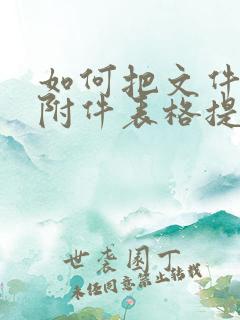 如何把文件
附件表格提
世袭园丁
未经同意禁止转载